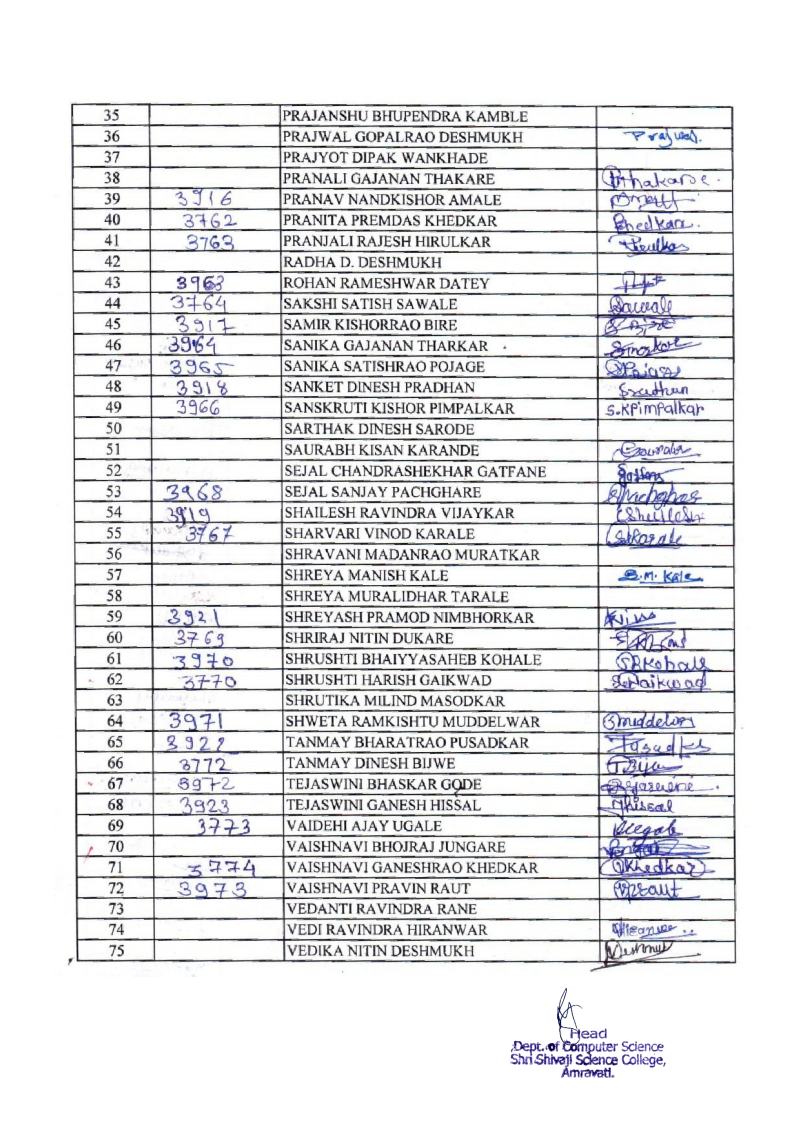 35 PRAJANSHU BHUPENDRA KAMBLE
36 PRAJWAL GOPALRAO DESHMUKH Prajwal.
37 PRAJYOT DIPAK WANKHADE
38 PRANALI GAJANAN THAKARE Pthakare.
39 3916 PRANAV NANDKISHOR AMALE
40 3762 PRANITA PREMDAS KHEDKAR Khedkar.
41 3763 PRANJALI RAJESH HIRULKAR Hirulkar
42 RADHA D. DESHMUKH
43 3963 ROHAN RAMESHWAR DATEY
44 3764 SAKSHI SATISH SAWALE Sawale
45 3917 SAMIR KISHORRAO BIRE S Bire
46 3964 SANIKA GAJANAN THARKAR
47 3965 SANIKA SATISHRAO POJAGE
48 3918 SANKET DINESH PRADHAN
49 3966 SANSKRUTI KISHOR PIMPALKAR S.KPimpalkar
50 SARTHAK DINESH SARODE
51 SAURABH KISAN KARANDE
52 SEJAL CHANDRASHEKHAR GATFANE
53 3968 SEJAL SANJAY PACHGHARE
54 3919 SHAILESH RAVINDRA VIJAYKAR
55 3767 SHARVARI VINOD KARALE SKarale
56 SHRAVANI MADANRAO MURATKAR
57 SHREYA MANISH KALE S.M. Kale
58 SHREYA MURALIDHAR TARALE
59 3921 SHREYASH PRAMOD NIMBHORKAR
60 3769 SHRIRAJ NITIN DUKARE
61 3970 SHRUSHTI BHAIYYASAHEB KOHALE SBKohale
62 3770 SHRUSHTI HARISH GAIKWAD S.Gaikwad
63 SHRUTIKA MILIND MASODKAR
64 3971 SHWETA RAMKISHTU MUDDELWAR
65 3922 TANMAY BHARATRAO PUSADKAR
66 3772 TANMAY DINESH BIJWE
67 3972 TEJASWINI BHASKAR GODE
68 3923 TEJASWINI GANESH HISSAL Thissal
69 3773 VAIDEHI AJAY UGALE
70 VAISHNAVI BHOJRAJ JUNGARE
71 3774 VAISHNAVI GANESHRAO KHEDKAR VKhedkar
72 3973 VAISHNAVI PRAVIN RAUT VPRaut
73 VEDANTI RAVINDRA RANE
74 VEDI RAVINDRA HIRANWAR
75 VEDIKA NITIN DESHMUKH
Head
Dept. of Computer Science
Shri Shivaji Science College,
Amravati.